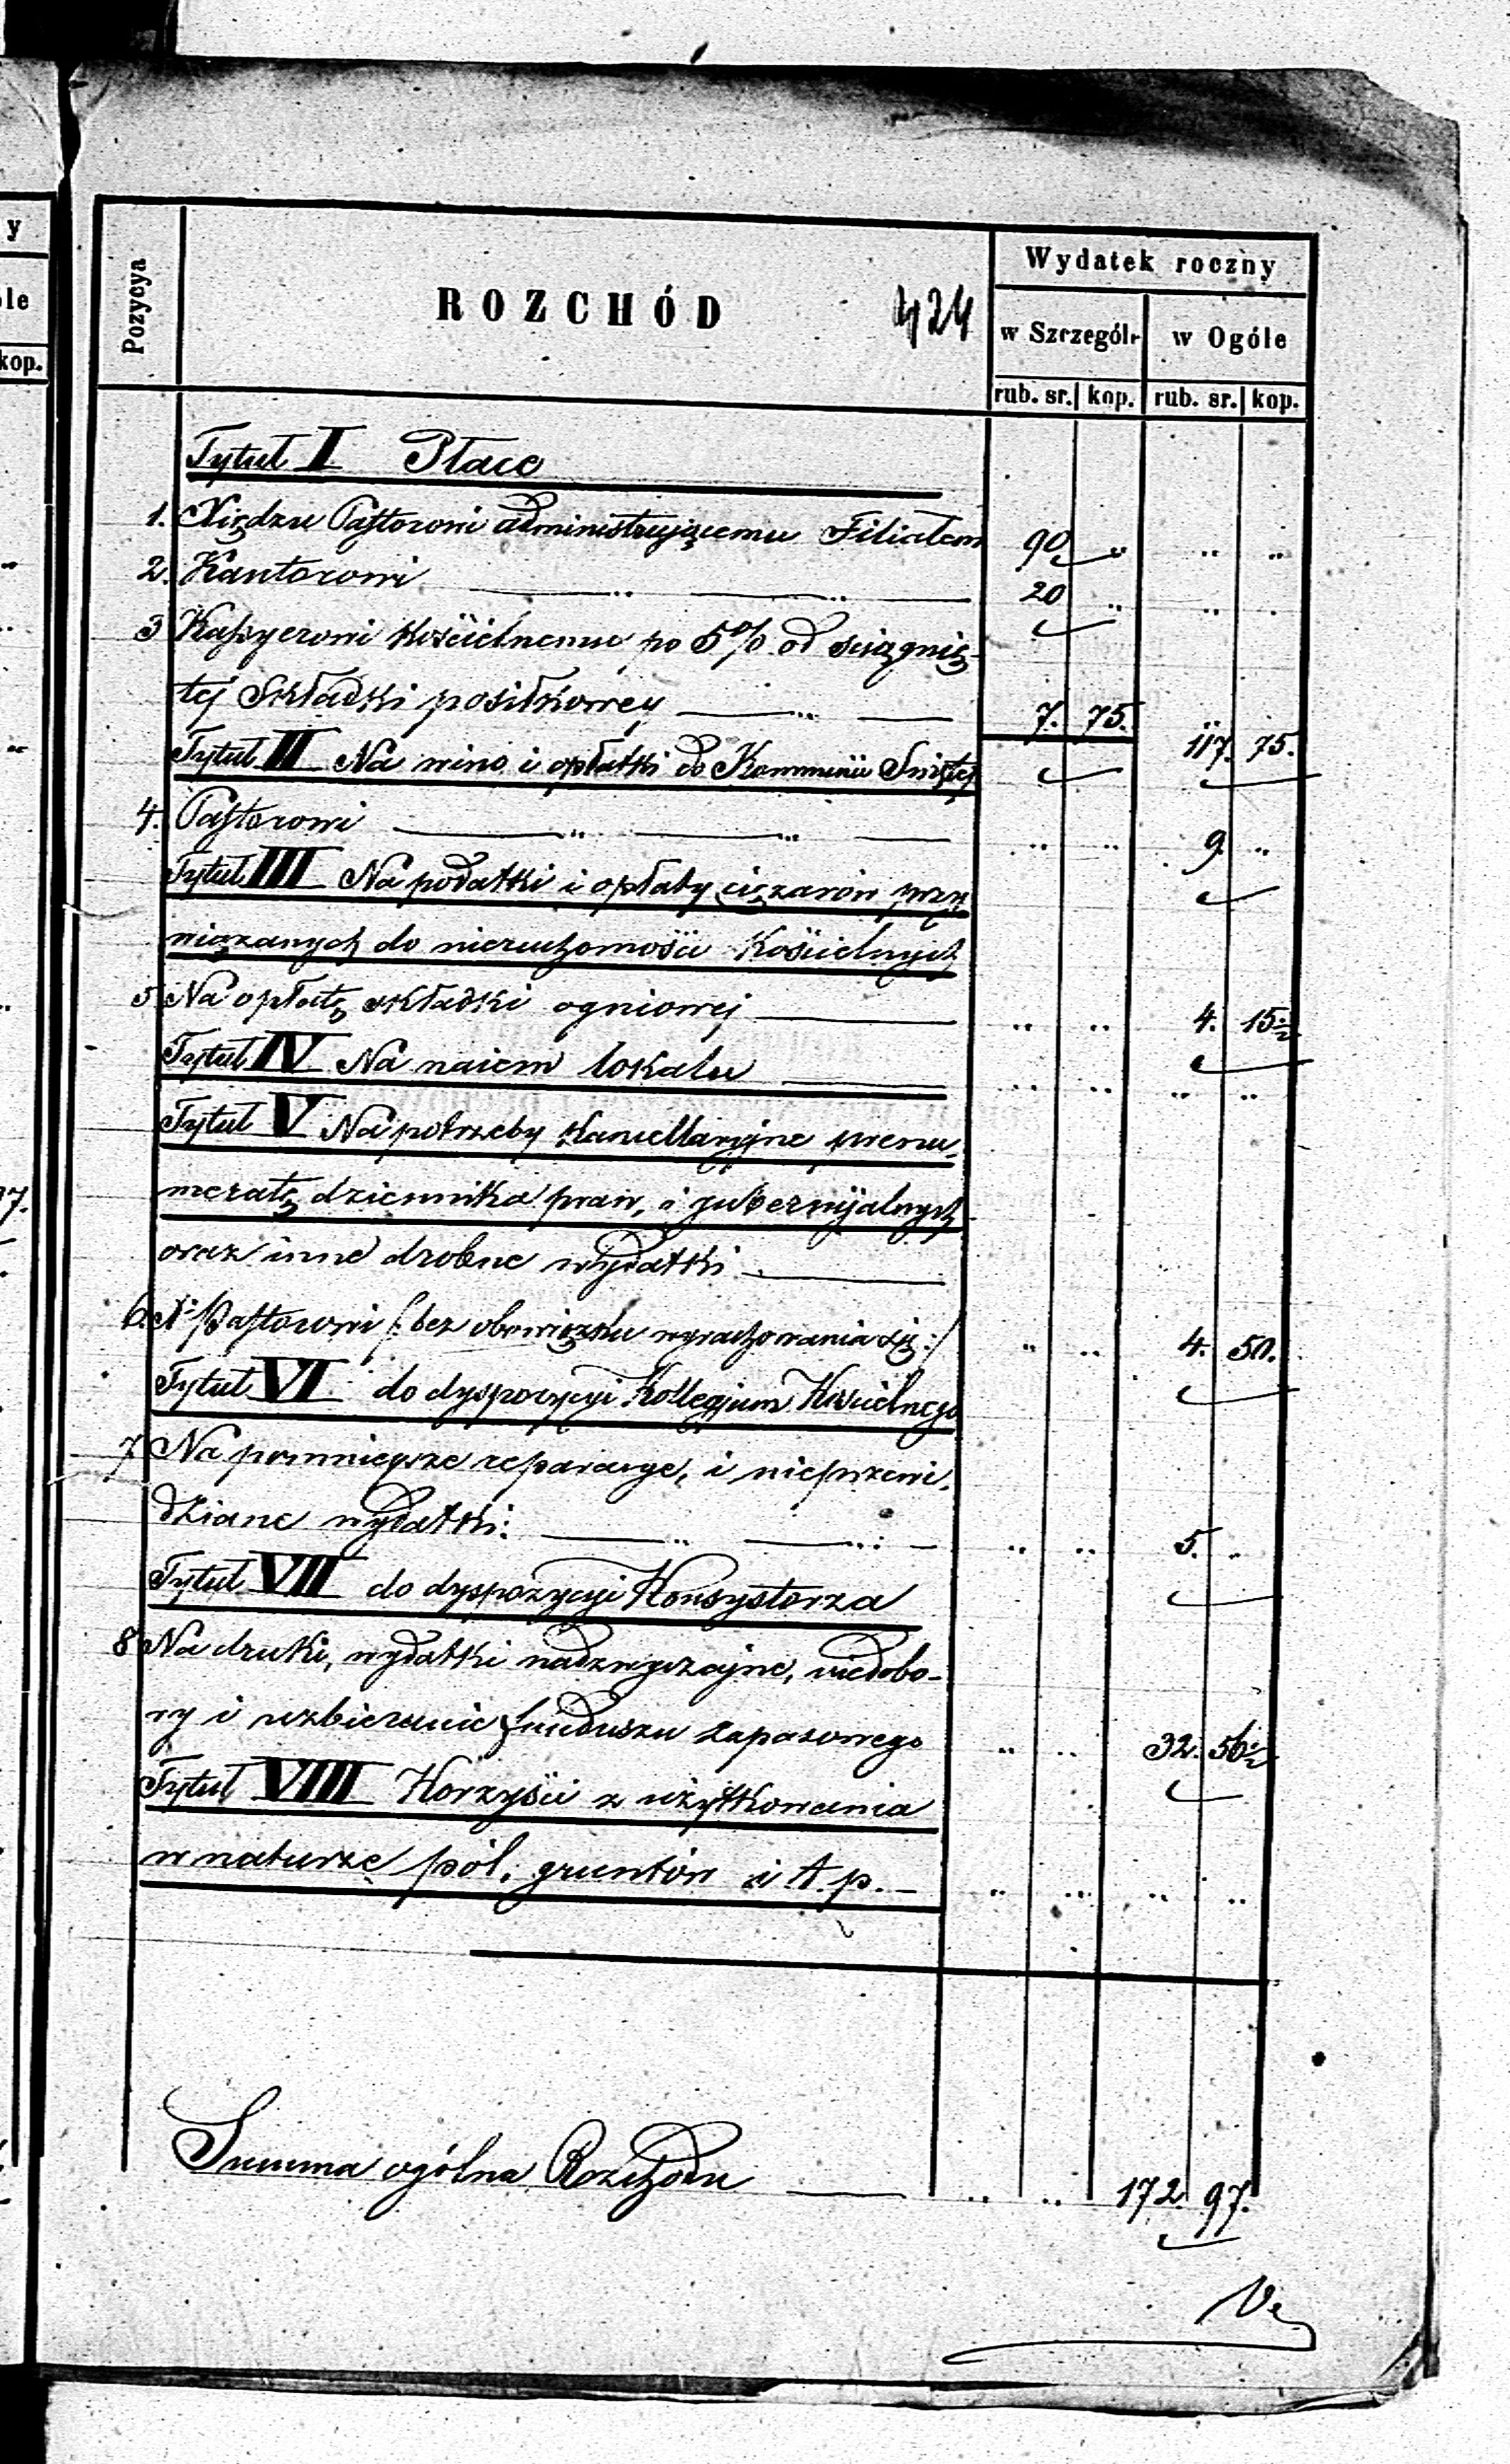 y
ole
kop.
Pozycya
ROZCHÓD
424
Wydatek roczny
w Szczegól.
w Ogóle
rub. sr. kop. rub. sr. kop.
Tytuł I Płace
1. Xiędzu Pastorowi administrującemu Filiałem 90 " " "
2. Kantorowi 20 " " "
3 Kassyerowi Kościelnemu po 5% od ściągnię-
tej Składki posiłkowey 7. 75. 117. 75.
Tytuł II Na wino i opłatki do Kommunii Swiętej
4. Pastorowi " " 9. "
Tytuł III Na podatki i opłaty ciężarów przy
wiązanych do nieruchomości Kościelnych
5 Na opłatę składki ogniowej " " 4. 15½
Tytuł IV Na naiem lokalu " " " "
Tytuł V Na potrzeby kancellaryjne prenu-
meratę dziennika praw, i gubernijalnych
oraz inne drobne wydatki
6. X: Pastorowi /: bez obowiązku wyrachowania się :/ " " 4. 50.
Tytuł VI do dyspozycyi Kollegium Kościelnego
7 Na pomnieysze reparacye, i nieprzewi-
dziane wydatki: " " 5. "
Tytuł VII do dyspozycyi Konsystorza
8 Na druki, wydatki nadzwyczajne, niedobo-
ry i uzbieranie funduszu zapasowego " " 32. 56½
Tytuł VIII Korzyści z użytkowania
w naturze pól, gruntów i t. p. " " " "
Summa ogólna Rozchodu " " 172. 97.